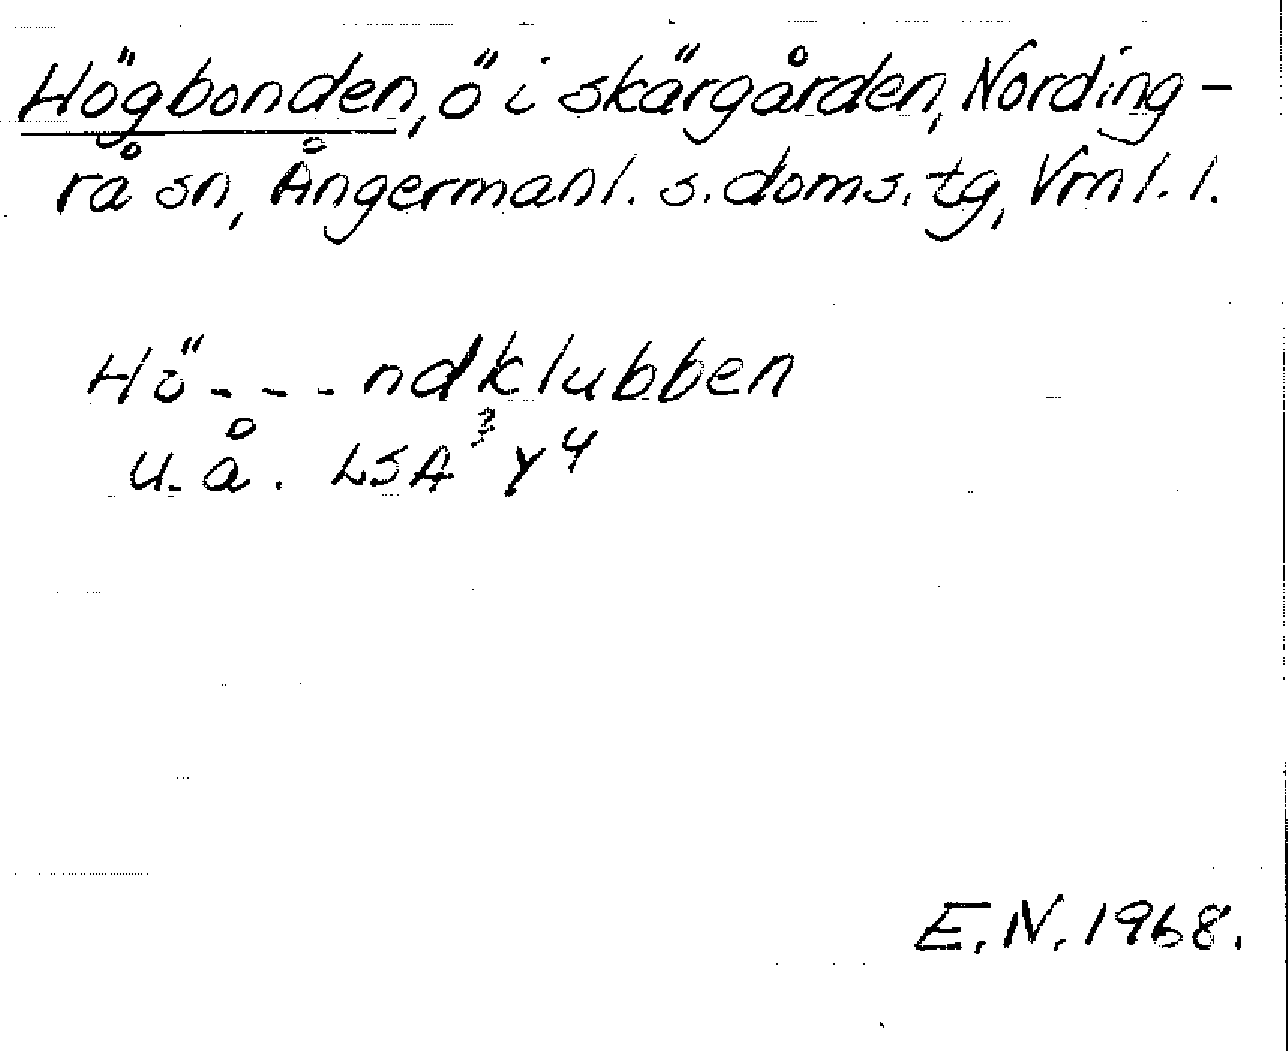 Högbonden, ö i skärgården, Nording-
rå sn, Ångermanl. s. doms. tg, Vrnl. l.
Hö - - - ndklubben
u. å. LSA³ Y4
E. N. 1968.